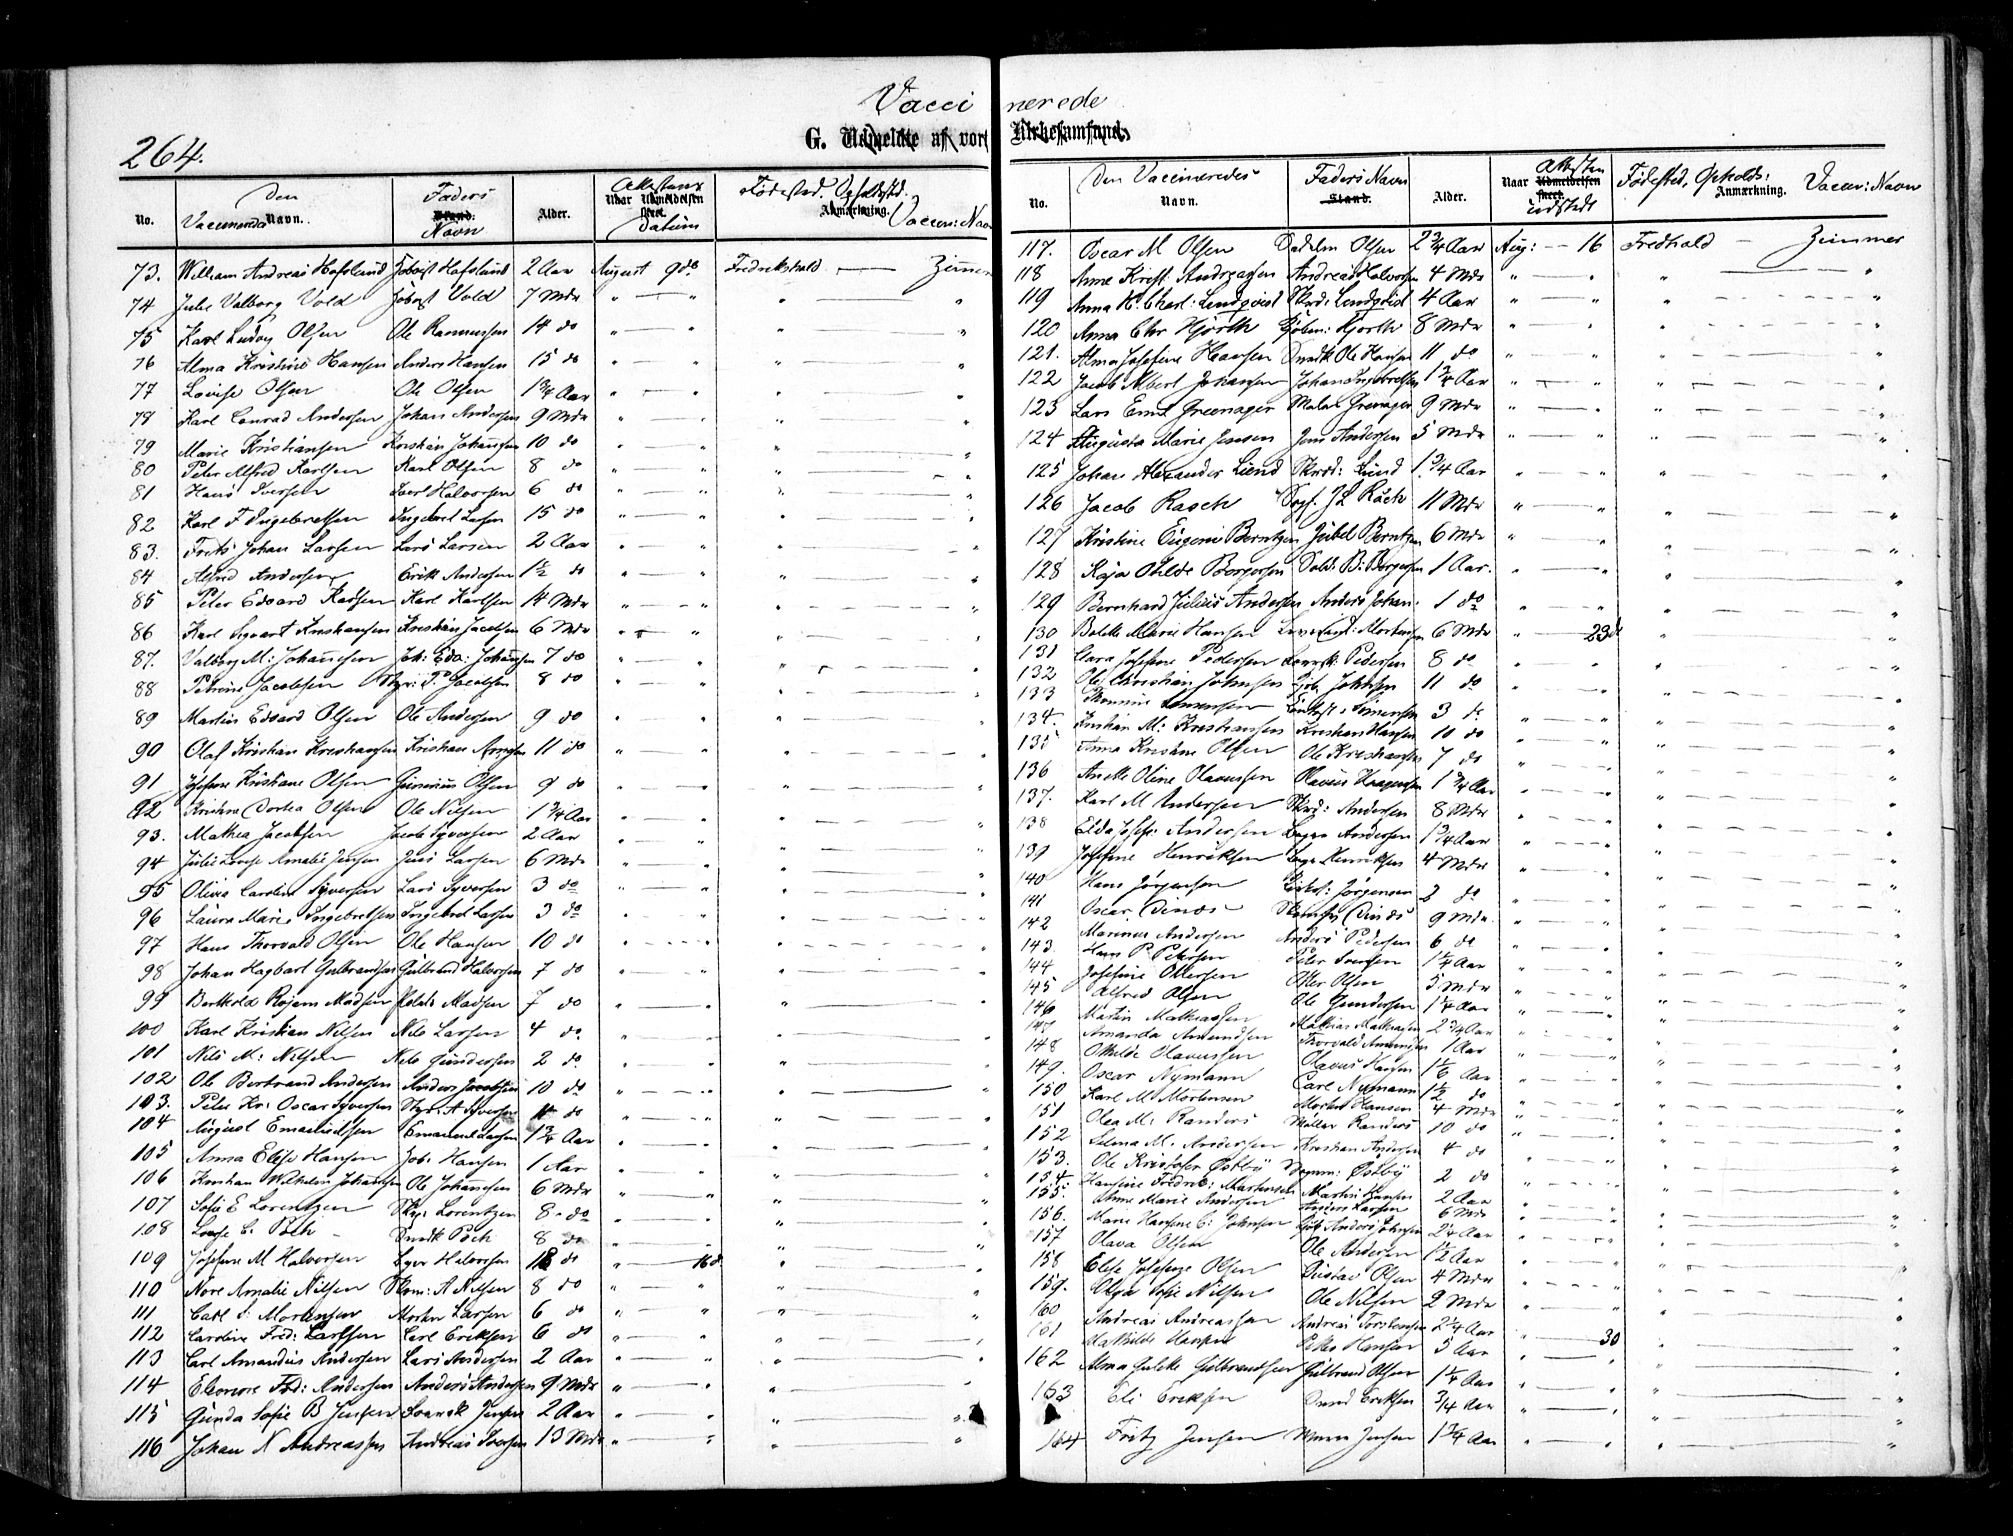 Vaccinerede
264.
G. Udmeldte af vort Kirkesamfund.
No. Den Vaccineredes Navn. Faders Stand. Navn Alder. Attestens Naar Udmeldelsen skeet. Datum Fødested. Opholdsted. Anmærkning. Vaccin: Navn
73. William Andreas Hafslund Jobgt Hafslund 2 Aar August 9de Fredrikshald — Zimmer
74 Julie Valborg Vold Jobgt Vold 7 Mdr " — " " "
75 Karl Ludvig Olsen Ole Rasmussen 14 do " — " " "
76 Alma Kristine Hansen Anders Hansen 15 do " — " " "
77 Lovise Olsen Ole Olsen 1 3/4 Aar " — " " "
78 Karl Conrad Andersen Johan Andersen 9 Mdr " — " " "
79 Marie Kristiansen Kristian Johansen 10 do " — " " "
80 Peter Alfred Karlsen Karl Olsen 8 do " — " " "
81 Hans Iversen Iver Halvorsen 6 do " — " " "
82 Karl F Ingebretsen Ingebret Larsen 15 do " — " " "
83. Frits Johan Larsen Lars Larsen 2 Aar " — " " "
84 Alfred Andersen Erik Andersen 1 1/2 do " — " " "
85 Peter Edvard Karlsen Karl Karlsen 14 Mdr " — " " "
86 Karl Sigvart Kristiansen Kristian Jacobsen 6 Mdr " — " " "
87. Valborg M: Johannesen Joh: Edv: Johannesen 7 do " — " " "
88 Petrine Jacobsen Styr: P. Jacobsen 8 do " — " " "
89 Martin Edvard Olsen Ole Andersen 9 do " — " " "
90 Olaf Kristian Kristiansen Kristian 11 do " — " " "
91 Josefine Kristiane Olsen Olsen 9 do " — " " "
92 Kristine Dortea Olsen Ole Nilsen 1 3/4 Aar " — " " "
93. Mathea Jacobsen Jacob Syversen 2 Aar " — " " "
94 Julie Lovise Amalie Jensen Jens Larsen 6 Mdr " — " " "
95 Olivia Caroline Syversen Lars Syversen 3 do " — " " "
96 Laura Marie Ingebretsen Ingebret Larsen 3 do " — " " "
97 Hans Thorvald Olsen Ole Hansen 10 do " — " " "
98 Johan Hagbart Gulbrandsen Gulbrand Halvorsen 7 do " — " " "
99 Berthold Madsen Madsen 7 do " — " " "
100 Karl Kristian Nilsen Nils Larsen 4 do " — " " "
101 Nils M: Nilsen Nils Gundersen 2 do " — " " "
102 Ole Bertrand Andersen Anders Jacobsen 10 do " — " " "
103. Peter Kr: Oscar Syversen Styr: A Syversen 11 do " — " " "
104 August Emanuelsen Emanuel Larsen 1 3/4 Aar " — " " "
105 Anna Elise Hansen Joh: Hansen 1 Aar " — " " "
106 Kristian Wilhelm Johannesen Ole Johannesen 6 Mdr " — " " "
107 Sofie E Lorentzen Lorentzen 8 do " — " " "
108 Lovise C. Poch Smdk Poch 8 do " — " " "
109 Josefine M Halvorsen Halvorsen 18 do " — 16 d " "
110 Nore Amalie Nilsen Skom: A Nilsen 8 do " — " " "
111 Carl Mortensen Morten Larsen 6 do " — " " "
112 Caroline Fred: Larsen Carl Eriksen 6 do " — " " "
113 Carl Amandus Andersen Lars Andersen 2 Aar " — " " "
114 Eleonore Frd: Andersen Anders Andersen 9 Mdr " — " " "
115 Gunda Sofie B Jensen Jensen 2 Aar " — " " "
116 Johan N Andreassen Andreas Iversen 13 Mdr " — " " "
No. Den Vaccineredes Navn. Faders Navn Stand. Alder. Naar Attesten Udmeldelsen skeet. udstedt Fødested, Opholds: Anmærkning. Vaccin: Navn
117. Oscar M Olsen Sadelm Olsen 2 3/4 Aar Aug: — 16 Fredhald — Zimmer
118 Anne Krist: Andreasen Andreas Halvorsen 4 Mdr " — " " "
119 Anna K. Charl: Lundqvist Skrd: Lundqvist 4 Aar " — " " "
120 Anna Chr Hjorth Kjøbm: Hjorth 8 Mdr " " " "
121. Alma Josefine Hansen Smdk Ole Hansen 11 do " — " " "
122 Jacob Albert Johansen Johan Ingebretsen 1 3/4 Aar " — " " "
123 Lars Emil Grenager Maler Grenager 9 Mdr " — " " "
124 Augusta Marie Jensen Jens Andersen 5 Mdr " — " " "
125 Johan Alexander Lund Skrd: Lund 1 3/4 Aar " — " " "
126 Jacob Rasch Sogf. J L Rasch 11 Mdr " — " " "
127 Kristine Eugenie Berntzen Berntzen 6 Mdr " — " " "
128 Kaja Otilde Borgersen Sold: B: Borgersen 1 Aar. " — " " "
129 Bernhard Julius Andersen Anders Johan: 1 do " " " "
130 Bolette Marie Hansen Mortensen 6 Mdr " — 23d " "
131 Clara Josefine Pedersen Pedersen 8 do " " " "
132 Ole Christian Johnsen Johnsen 11 do " — " " "
133 Simensen Simensen 3 do " — " " "
134. Kristian M: Kristiansen Kristian Hansen 10 do " — " " "
135 Anna Kristine Olsen Ole Kristiansen 7 do " — " " "
136 Anette Oline Olavussen Olavus 1 3/4 Aar " — " " "
137. Karl M Andersen Skrd: Andersen 8 Mdr " — " " "
138 Elida Josefi: Andersen Andersen 1 3/4 Aar " — " " "
139 Josefine Henriksen Henriksen 4 Mdr " — " " "
140 Hans Jørgensen Jørgensen 3 do " — " " "
141 Oscar 9 Mdr " — " " "
142 Marinus Andersen Anders Pedersen 6 do " — " " "
143. Hans P. Petersen Peter Svensen 1 1/4 Aar " — " " "
144 Josefine Ottersen Otter Olsen 5 Mdr " — " " "
145 Alfred Olsen Ole Gundersen 1 1/4 Aar " — " " "
146 Martin Mathiassen Mathias Mathiasen 2 3/4 Aar " — " " "
147 Amanda Amundsen Thorvald Amundsen 1 Aar " — " " "
148 Othilde Olavussen Olavus Hansen 1 1/6 Aar " — " " "
149. Oscar Nymann Carl Nymann 1 1/2 do " — " " "
150 Karl M Mortensen Morten Hansen 4 Mdr " — " " "
151 Olea M: Randers Møller Randers 10 do " — " " "
152 Selma M. Andersen Kristian Andersen 4 do " — " " "
153. Ole Kristofer Østby Østby 2 do " — " " "
154. Hansine Fredrik: Martinsen Martin Hansen 2 Aar " — " " "
155. Anne Marie Andersen Anders Larsen 6 Mdr " — " " "
156. Marie Hansine C: Johnsen Anders Johnsen 2 1/4 Aar " — " " "
157 Olava Olsen Ole Andersen 1 1/2 Aar " — " " "
158 Elise Josefine Olsen Gustav Olsen 4 Mdr " — " " "
159. Olga Sofie Nilsen Ole Nilsen 2 Mdr " — " " "
160 Andreas Andreassen Andreas Torstensen 2 1/4 Aar " — " " "
161 Mathilde Hansen Peter Hansen 5 Aar " — 30 " "
162 Alma Julie Gulbrandsen Gulbrand Olsen 1 1/4 Aar " — " " "
163 Eli Eriksen Smed Eriksen 3/4 Aar " — " " "
164 Fritz Jensen Murer Jensen 1 3/4 Aar " — " " "